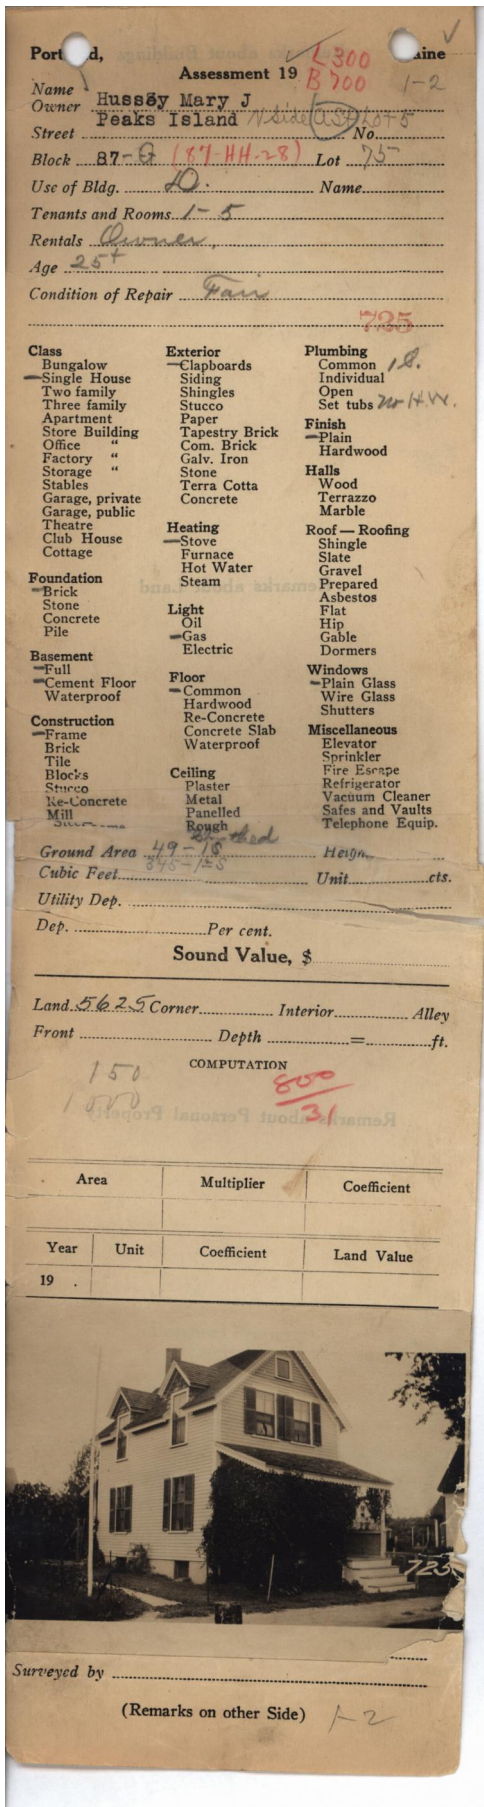 Portland, Maine
L 300
Assessment 19
B 700
1-2
Name
Owner Hussey Mary J
Peaks Island N Side A St Lot 5
Street No.
Block 87-G (87-HH-28) Lot 75
Use of Bldg. D. Name
Tenants and Rooms 1-5
Rentals Owner,
Age 25+
Condition of Repair Fair
725
Class
Bungalow
Single House
Two family
Three family
Apartment
Store Building
Office "
Factory "
Storage "
Stables
Garage, private
Garage, public
Theatre
Club House
Cottage
Foundation
Brick
Stone
Concrete
Pile
Basement
Full
Cement Floor
Waterproof
Construction
Frame
Brick
Tile
Blocks
Stucco
Re-Concrete
Mill
Exterior
Clapboards
Siding
Shingles
Stucco
Paper
Tapestry Brick
Com. Brick
Galv. Iron
Stone
Terra Cotta
Concrete
Heating
Stove
Furnace
Hot Water
Steam
Light
Oil
Gas
Electric
Floor
Common
Hardwood
Re-Concrete
Concrete Slab
Waterproof
Ceiling
Plaster
Metal
Panelled
Rough
Plumbing
Common 1 S.
Individual
Open
Set tubs no H.W.
Finish
Plain
Hardwood
Halls
Wood
Terrazzo
Marble
Roof — Roofing
Shingle
Slate
Gravel
Prepared
Asbestos
Flat
Hip
Gable
Dormers
Windows
Plain Glass
Wire Glass
Shutters
Miscellaneous
Elevator
Sprinkler
Fire Escape
Refrigerator
Vacuum Cleaner
Safes and Vaults
Telephone Equip.
Ground Area Height
Cubic Feet Unit cts.
Utility Dep.
Dep. Per cent.
Sound Value, $
Land 5625 Corner Interior Alley
Front Depth = ft.
COMPUTATION
150
1000
800
31
Area Multiplier Coefficient
Year Unit Coefficient Land Value
19 .
725
Surveyed by
(Remarks on other Side) 1-2